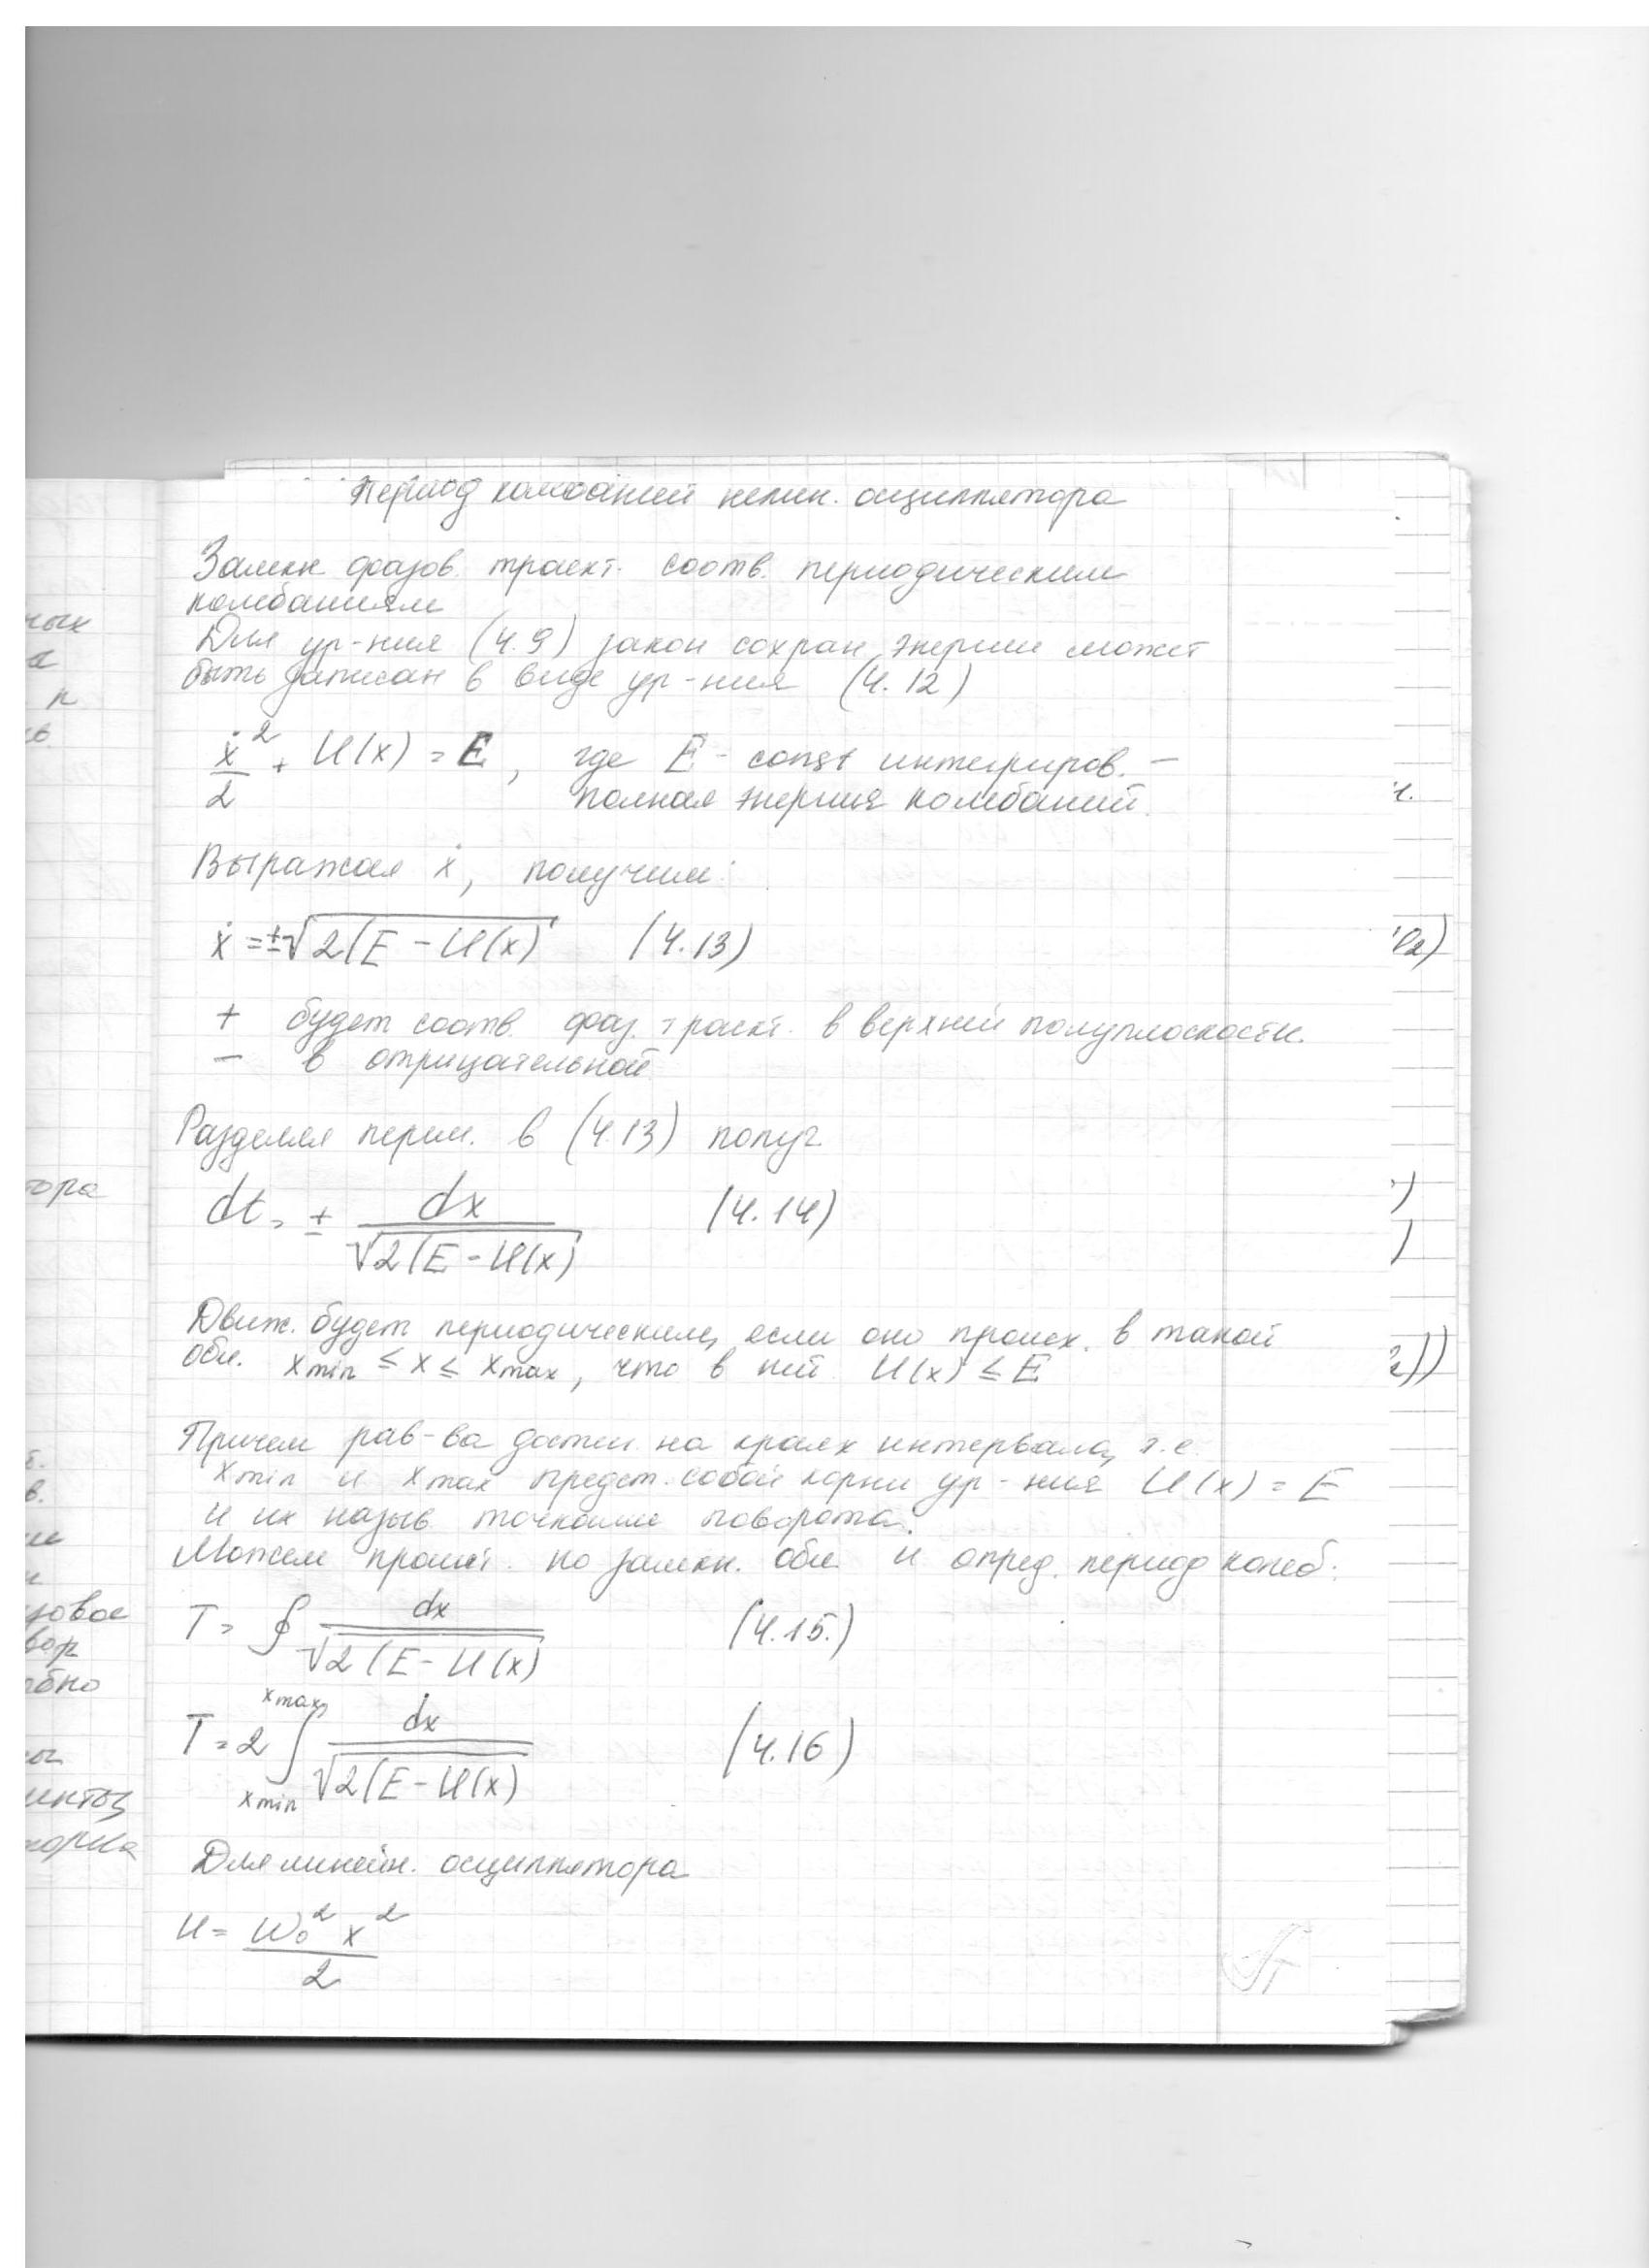 Период колебаний нелин. осциллятора
Замкн фазов. траект. соотв. периодическим
колебаниям
Для ур-ния (4.9) закон сохран энергии может
быть записан в виде ур-ния (4.12)
ẋ²/2 + U(x) = E, где E - const интегриров. –
полная энергия колебаний.
Выражая ẋ, получим:
ẋ = ±√2(E - U(x) (4.13)
+ будет соотв. фаз. траект. в верхней полуплоскости.
– в отрицательной
Разделяя перем. в (4.13) получ.
dt = ± dx/√2(E - U(x) (4.14)
Движ. будет периодическим, если оно происх. в такой
обл. xmin ≤ x ≤ xmax, что в ней U(x) ≤ E
Причем рав-ва достиг. на краях интервала, т.е.
xmin и xmax предст. собой корни ур-ния U(x) = E
и их назыв точками поворота.
Можем проинт. по замкн. обл и опред. период колеб:
T = ∮ dx/√2(E - U(x) (4.15.)
T = 2 ∫ xmin xmax dx/√2(E - U(x) (4.16)
Для линейн. осциллятора
U = ω₀² x²/2
ных
а
п
тора
б.
в.
ии
зовое
вор
обно